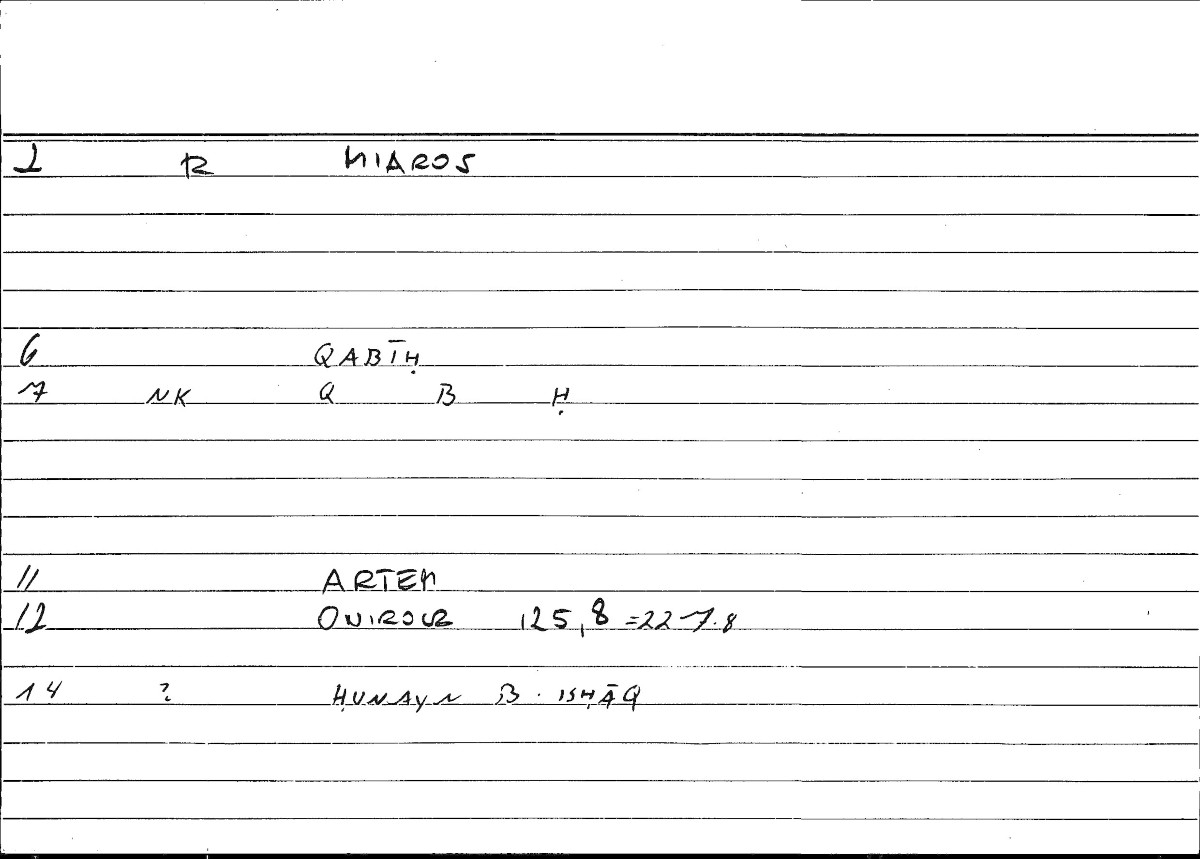 1 R MIAROS
6 QABĪḤ
7 NK Q B Ḥ
11 ARTEM
12 ONIROCR 125,8 =227.8
14 ? ḤUNAYN B. ISḤĀQ